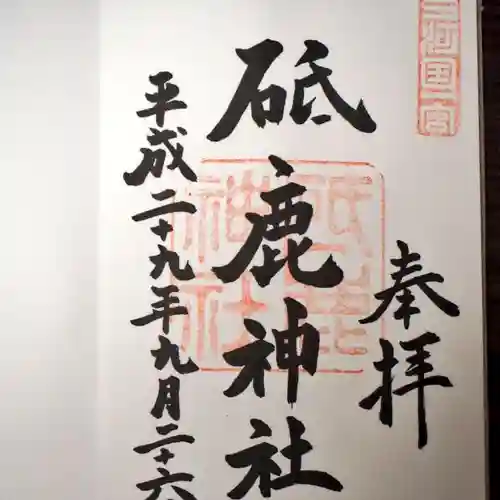 三河國一宮
奉拝
砥鹿神社
平成二十九年九月二十六